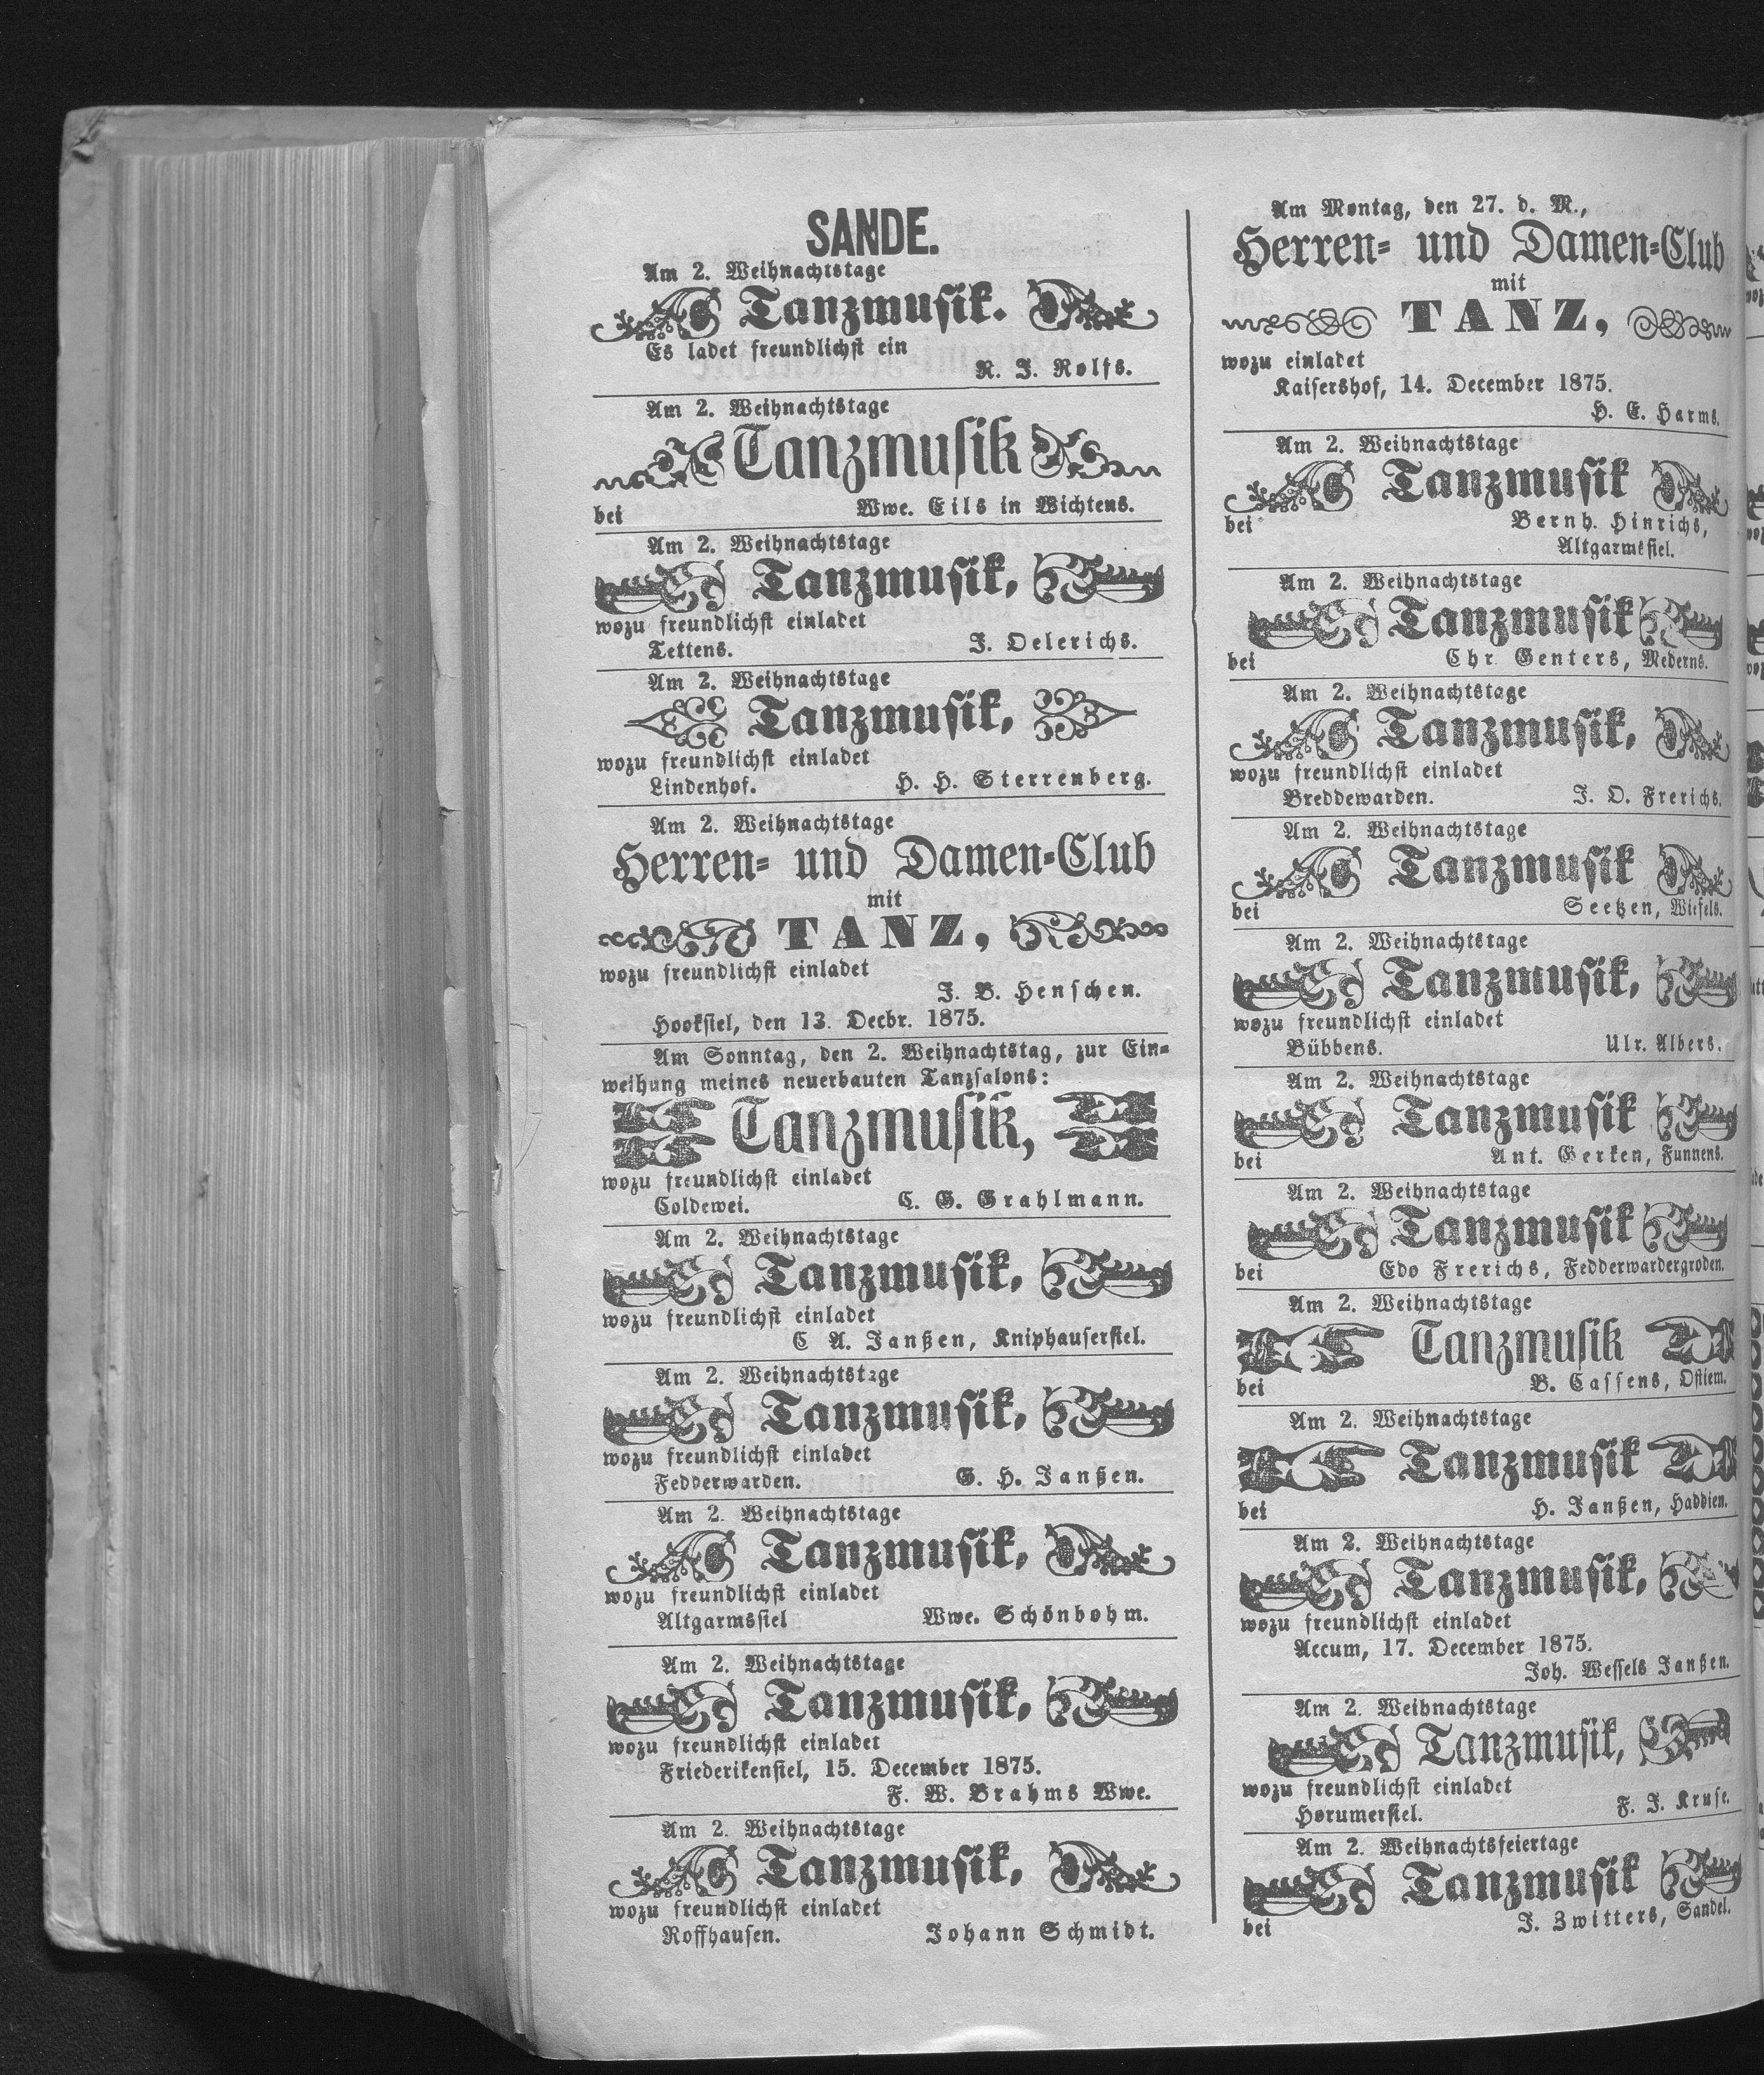 SANDE.
Am 2. Weihnachtstage
Tanzmusik.
Es ladet freundlichst ein
R. J. Rolfs.
Am 2. Weihnachtstage
Tanzmusik
bei Wwe. Eils in Wichtens.
Am 2. Weihnachtstage
Tanzmusik,
wozu freundlichst einladet
Tettens. J. Oelerichs.
Am 2. Weihnachtstage
Tanzmusik,
wozu freundlichst einladet
Lindenhof. H. H. Sterrenberg.
Am 2. Weihnachtstage
Herren- und Damen-Club
mit
TANZ,
wozu freundlichst einladet
J. B. Henschen.
Hooksiel, den 13. Decbr. 1875.
Am Sonntag, den 2. Weihnachtstag, zur Ein-
weihung meines neuerbauten Tanzsalons:
Tanzmusik,
wozu freundlichst einladet
Coldewei. C. G. Grahlmann.
Am 2. Weihnachtstage
Tanzmusik,
wozu freundlichst einladet
C A. Janßen, Kniphausersiel.
Am 2. Weihnachtstage
Tanzmusik,
wozu freundlichst einladet
Fedderwarden. G. H. Janßen.
Am 2. Weihnachtstage
Tanzmusik,
wozu freundlichst einladet
Altgarmssiel Wwe. Schönbohm.
Am 2. Weihnachtstage
Tanzmusik,
wozu freundlichst einladet
Friederikensiel, 15. December 1875.
F. W. Brahms Wwe.
Am 2. Weihnachtstage
Tanzmusik,
wozu freundlichst einladet
Roffhausen. Johann Schmidt.
Am Montag, den 27. d. M.,
Herren- und Damen-Club
mit
TANZ,
wozu einladet
Kaisershof, 14. December 1875.
H. E. Harms.
Am 2. Weihnachtstage
Tanzmusik
bei Bernh. Hinrichs,
Altgarmssiel.
Am 2. Weihnachtstage
Tanzmusik
bei Chr Genters, Mederns.
Am 2. Weihnachtstage
Tanzmusik,
wozu freundlichst einladet
Breddewarden. J. O. Frerichs.
Am 2. Weihnachtstage
Tanzmusik
bei Seetzen, Wiefels.
Am 2. Weihnachtstage
Tanzmusik,
wozu freundlichst einladet
Bübbens. Ulr. Albers.
Am 2. Weihnachtstage
Tanzmusik
bei Ant. Gerken, Funnens.
Am 2. Weihnachtstage
Tanzmusik
bei Edo Frerichs, Fedderwardergroden.
Am 2. Weihnachtstage
Tanzmusik
bei B. Cassens, Ostiem.
Am 2. Weihnachtstage
Tanzmusik
bei H. Janßen, Haddien.
Am 2. Weihnachtstage
Tanzmusik,
wozu freundlichst einladet
Accum, 17. December 1875.
Joh. Wessels Janßen.
Am 2. Weihnachtstage
Tanzmusik,
wozu freundlichst einladet
Horumersiel. F. J. Kruse.
Am 2. Weihnachtsfeiertage
Tanzmusik
bei J. Zwitters, Sandel.